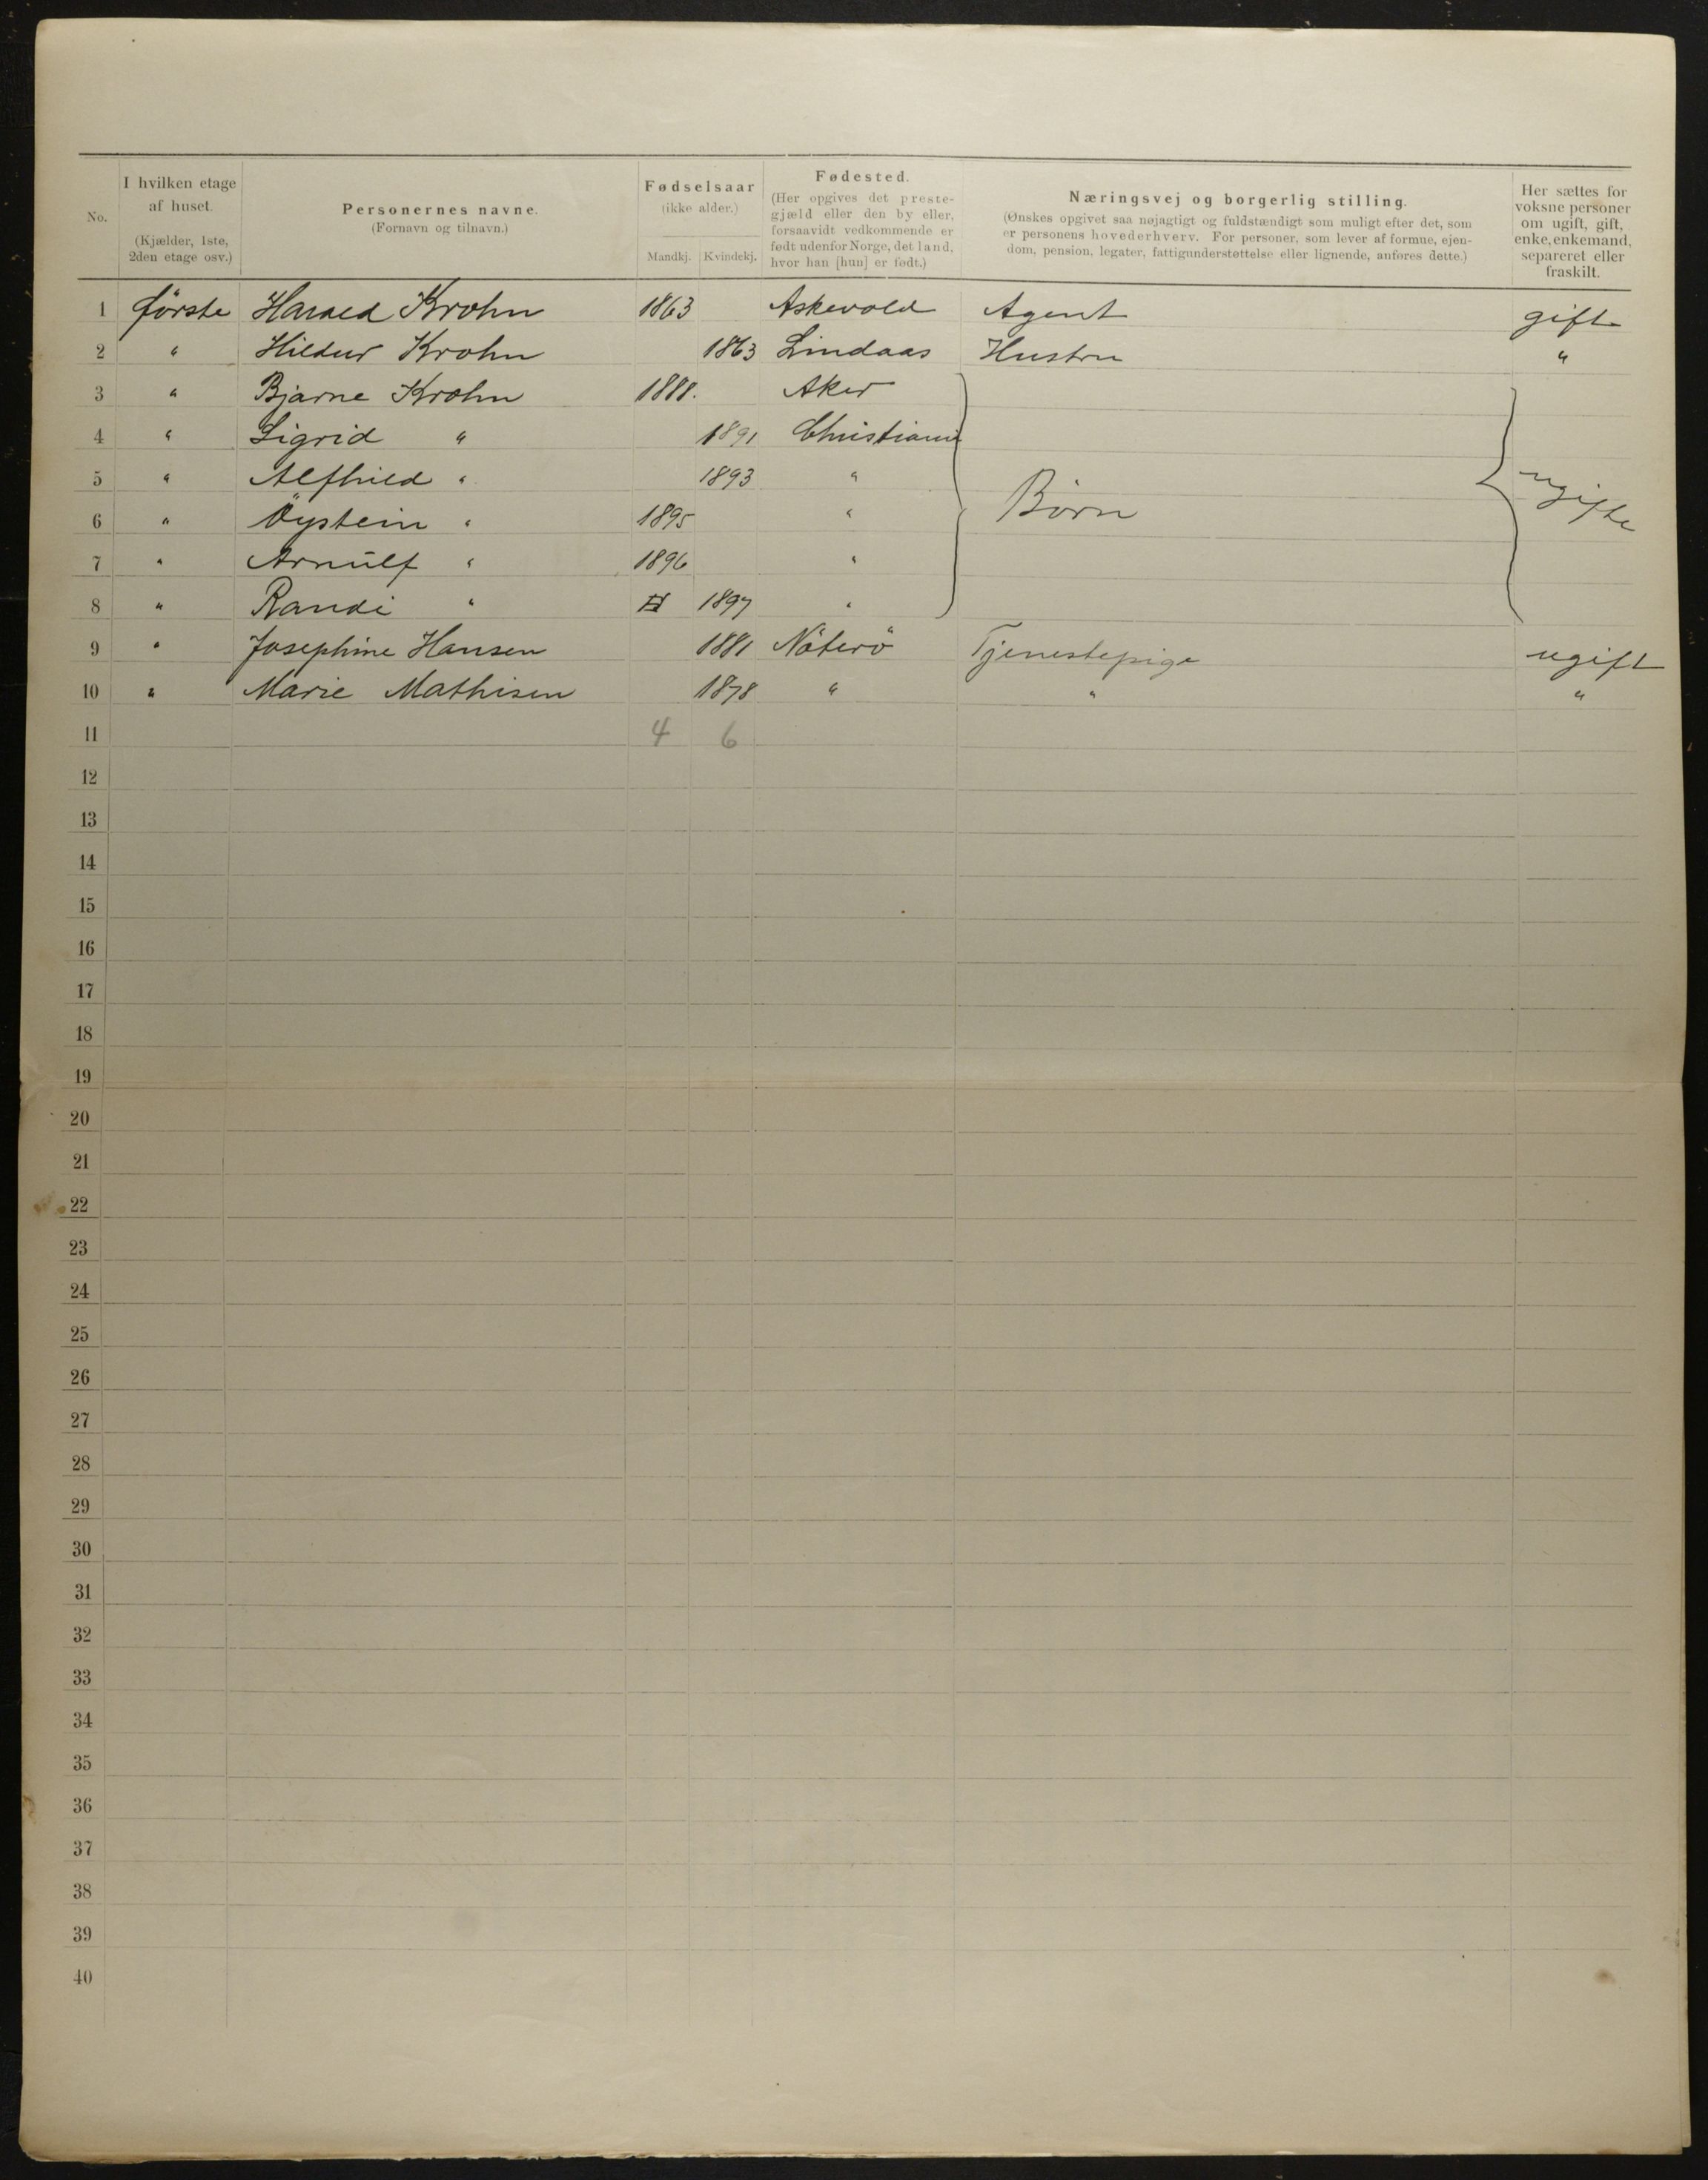 No.
I hvilken etage af huset. (Kjælder, 1ste, 2den etage osv.)
Personernes navne. (Fornavn og tilnavn.)
Fødselsaar (ikke alder.)
Mandkj. Kvindekj.
Fødested. (Her opgives det prestegjæld eller den by eller, forsaavidt vedkommende er født udenfor Norge, det land, hvor han [hun] er født.)
Næringsvej og borgerlig stilling.
(Ønskes opgivet saa nøjagtigt og fuldstændigt som muligt efter det, som er personens hovederhverv. For personer, som lever af formue, ejendom, pension, legater, fattigunderstøttelse eller lignende, anføres dette.)
Her sættes for voksne personer om ugift, gift, enke, enkemand, separeret eller fraskilt.
1 første Harald Krohn 1863 Askevold Agent gift
2 " Hildur Krohn 1863 Lindaas Hustru "
3 " Bjarne Krohn 1888. Aker
4 " Sigrid " 1891 Christiania
5 " Alfhild " 1893 "
6 " Öystein " 1895 " Børn ugifte
7 " Arnulf " 1896 "
8 " Randi " 1897 "
9 " Josephine Hansen 1881 Nöterö Tjenestepige ugift
10 " Marie Mathisen 1878 " " "
11 4 6
12
13
14
15
16
17
18
19
20
21
22
23
24
25
26
27
28
29
30
31
32
33
34
35
36
37
38
39
40